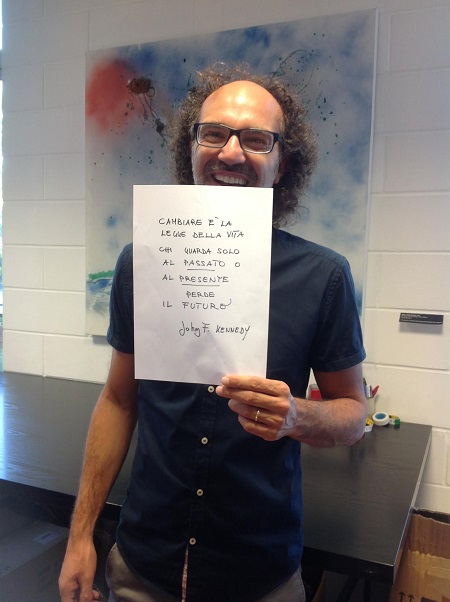 CAMBIARE E' LA
LEGGE DELLA VITA
CHI GUARDA SOLO
AL PASSATO O
AL PRESENTE
PERDE
IL FUTURO
John F. KENNEDY